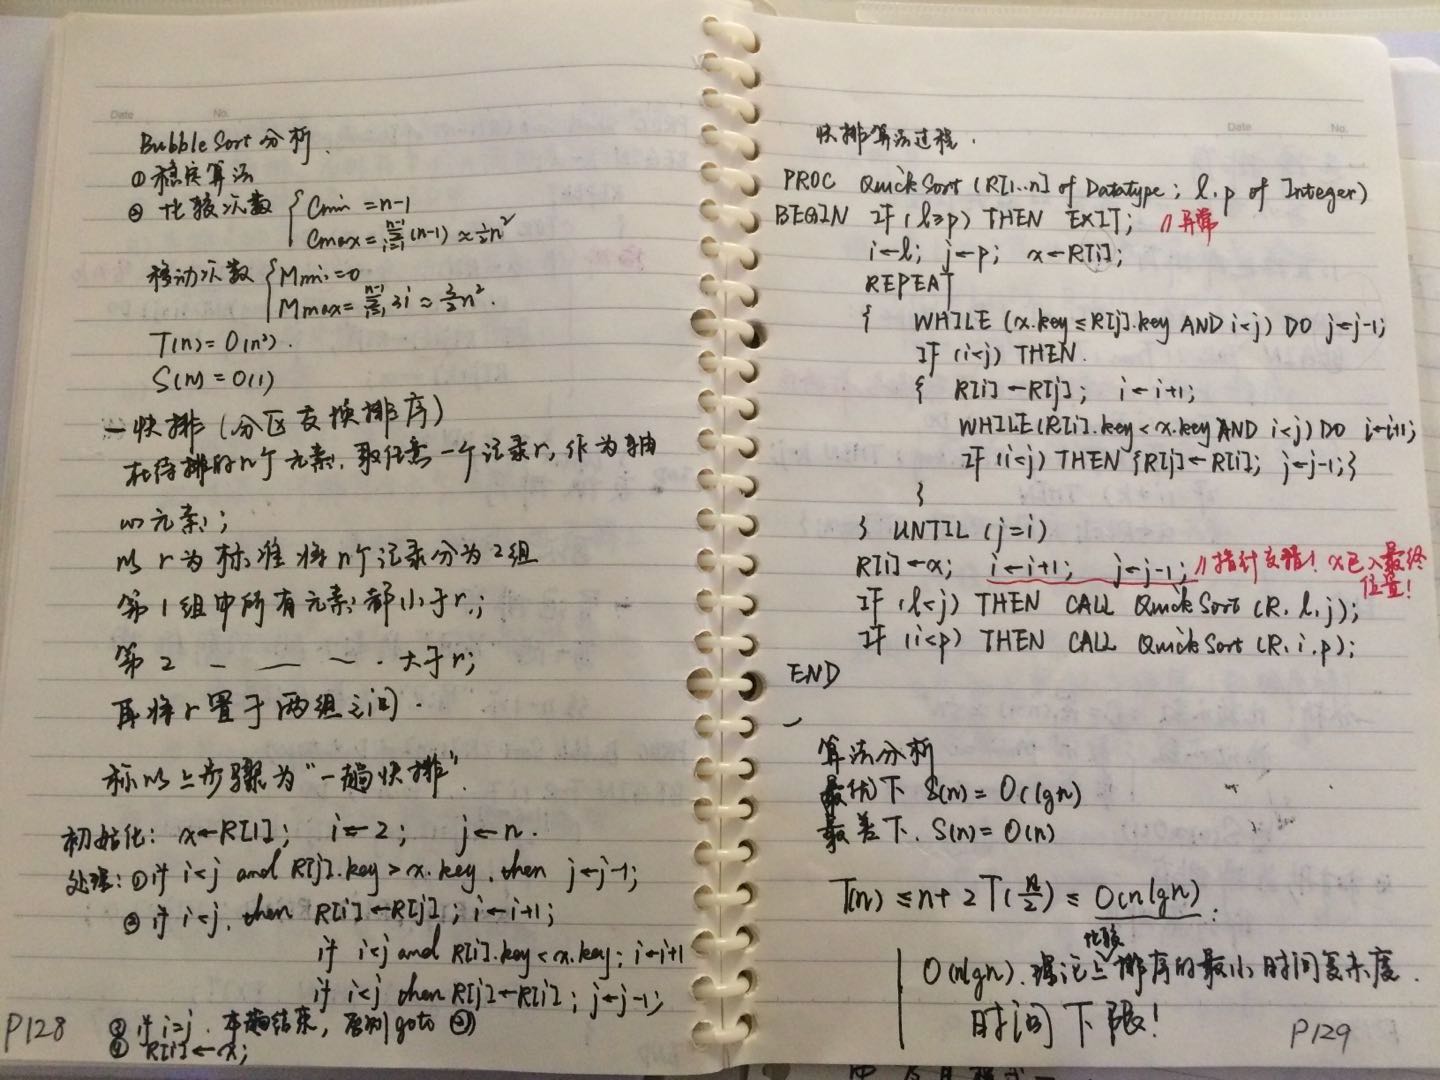 Date No.
BubbleSort 分析.
① 稳定算法
② 比较次数 { Cmin = n-1
Cmax = \sum_{i=1}^{n-1} (n-1) ≈ ½n²
移动次数 { Mmin = 0
Mmax = \sum_{i=1}^{n-1} 3i ≈ \frac{3}{2}n².
T(n) = O(n²).
S(n) = O(1)
一 快排 (分区交换排序)
在待排的n个元素, 取任意一个记录r, 作为轴
心元素;
以 r 为标准将n个记录分为2组
第1组中所有元素都小于r;
第2 — — — . 大于r;
再将r置于两组之间.
称以上步骤为“一趟快排”.
初始化: x←R[1]; i←2; j←n.
处理: ① if i<j and R[j].key > x.key, then j←j-1;
② if i<j, then R[i]←R[j]; i←i+1;
if i<j and R[i].key < x.key; i←i+1
if i<j then R[j]←R[i]; j←j-1;
③ if i=j. 本趟结束, 否则 goto ②
④ R[i]←x;
P128
Date No.
快排算法过程.
PROC QuickSort (R[1..n] of Datatype; l, p of Integer)
BEGIN If (l≥p) THEN EXIT; //异常
i←l; j←p; x←R[i];
REPEAT
{ WHILE (x.key ≤ R[j].key AND i<j) DO j←j-1;
If (i<j) THEN.
{ R[i]←R[j]; i←i+1;
WHILE (R[i].key < x.key AND i<j) DO i←i+1;
If (i<j) THEN {R[j]←R[i]; j←j-1;}
}
} UNTIL (j=i)
R[i]←x; i←i+1; j←j-1; //指针交错! x已入最终
位置!
If (l<j) THEN CALL QuickSort (R, l, j);
If (i<p) THEN CALL QuickSort (R, i, p);
END
算法分析
最优下 S(n) = O(lgn)
最差下. S(n) = O(n)
T(n) ≤ n + 2T(\frac{n}{2}) ≤ O(nlgn).
比较
O(nlgn). 理论上排序的最小时间复杂度.
时间下限!
P129